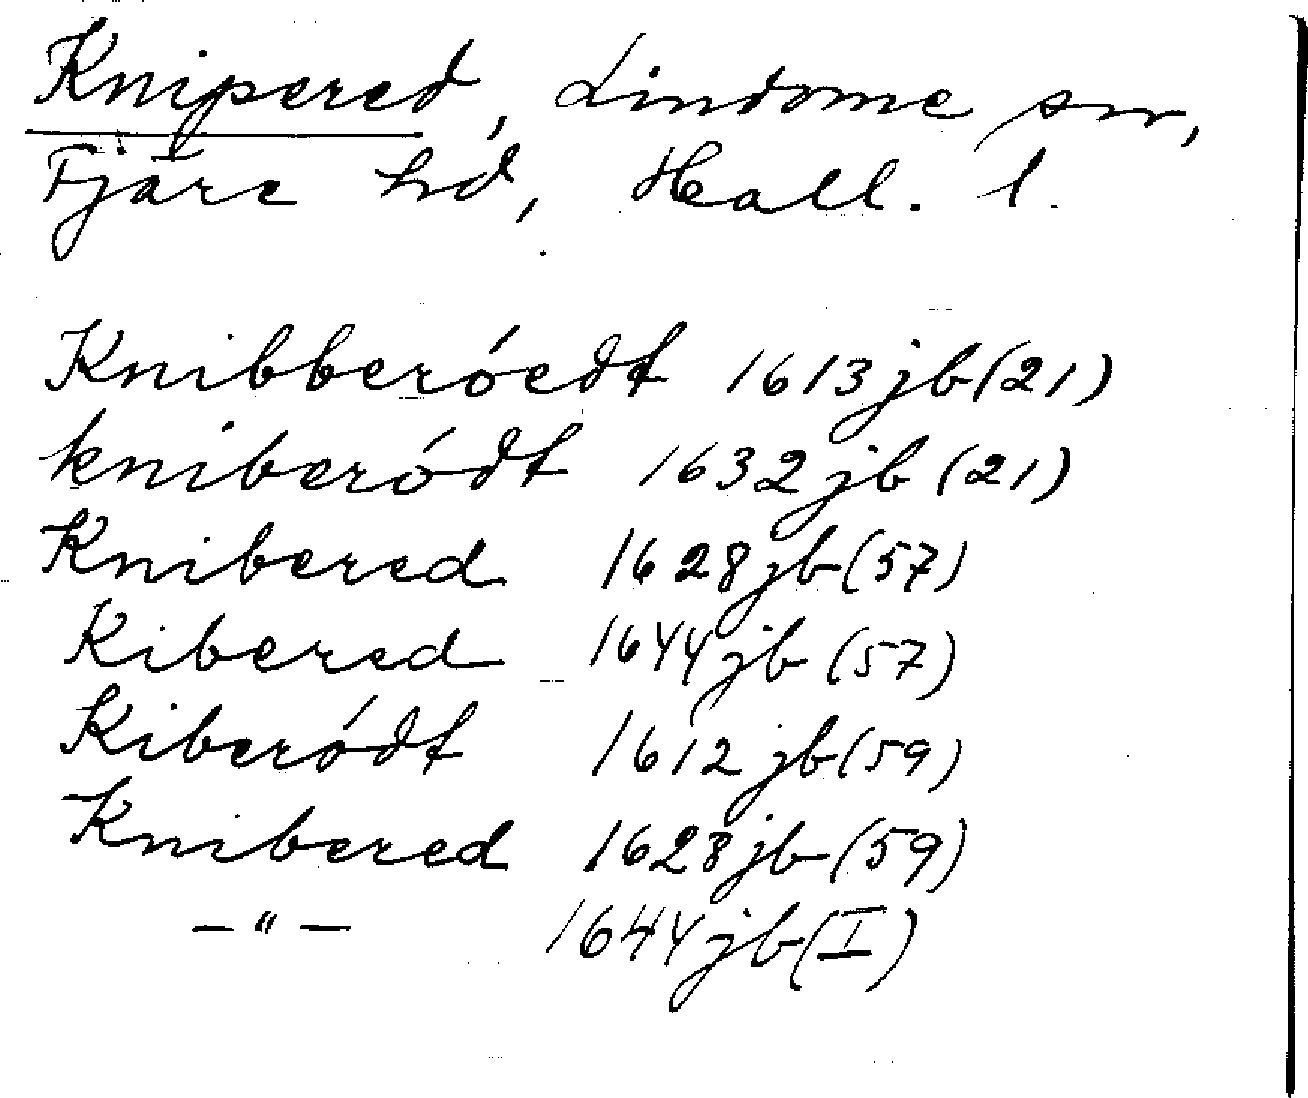 Knipered, Lindome sn,
Fjäre hd, Hall. l.
Knibberóedt 1613 jb (21)
kniberódt 1632 jb (21)
Knibered 1628 jb (57)
Kibered 1644 jb (57)
Kiberódt 1612 jb (59)
Knibered 1628 jb (59)
— " — 1644 jb (I)